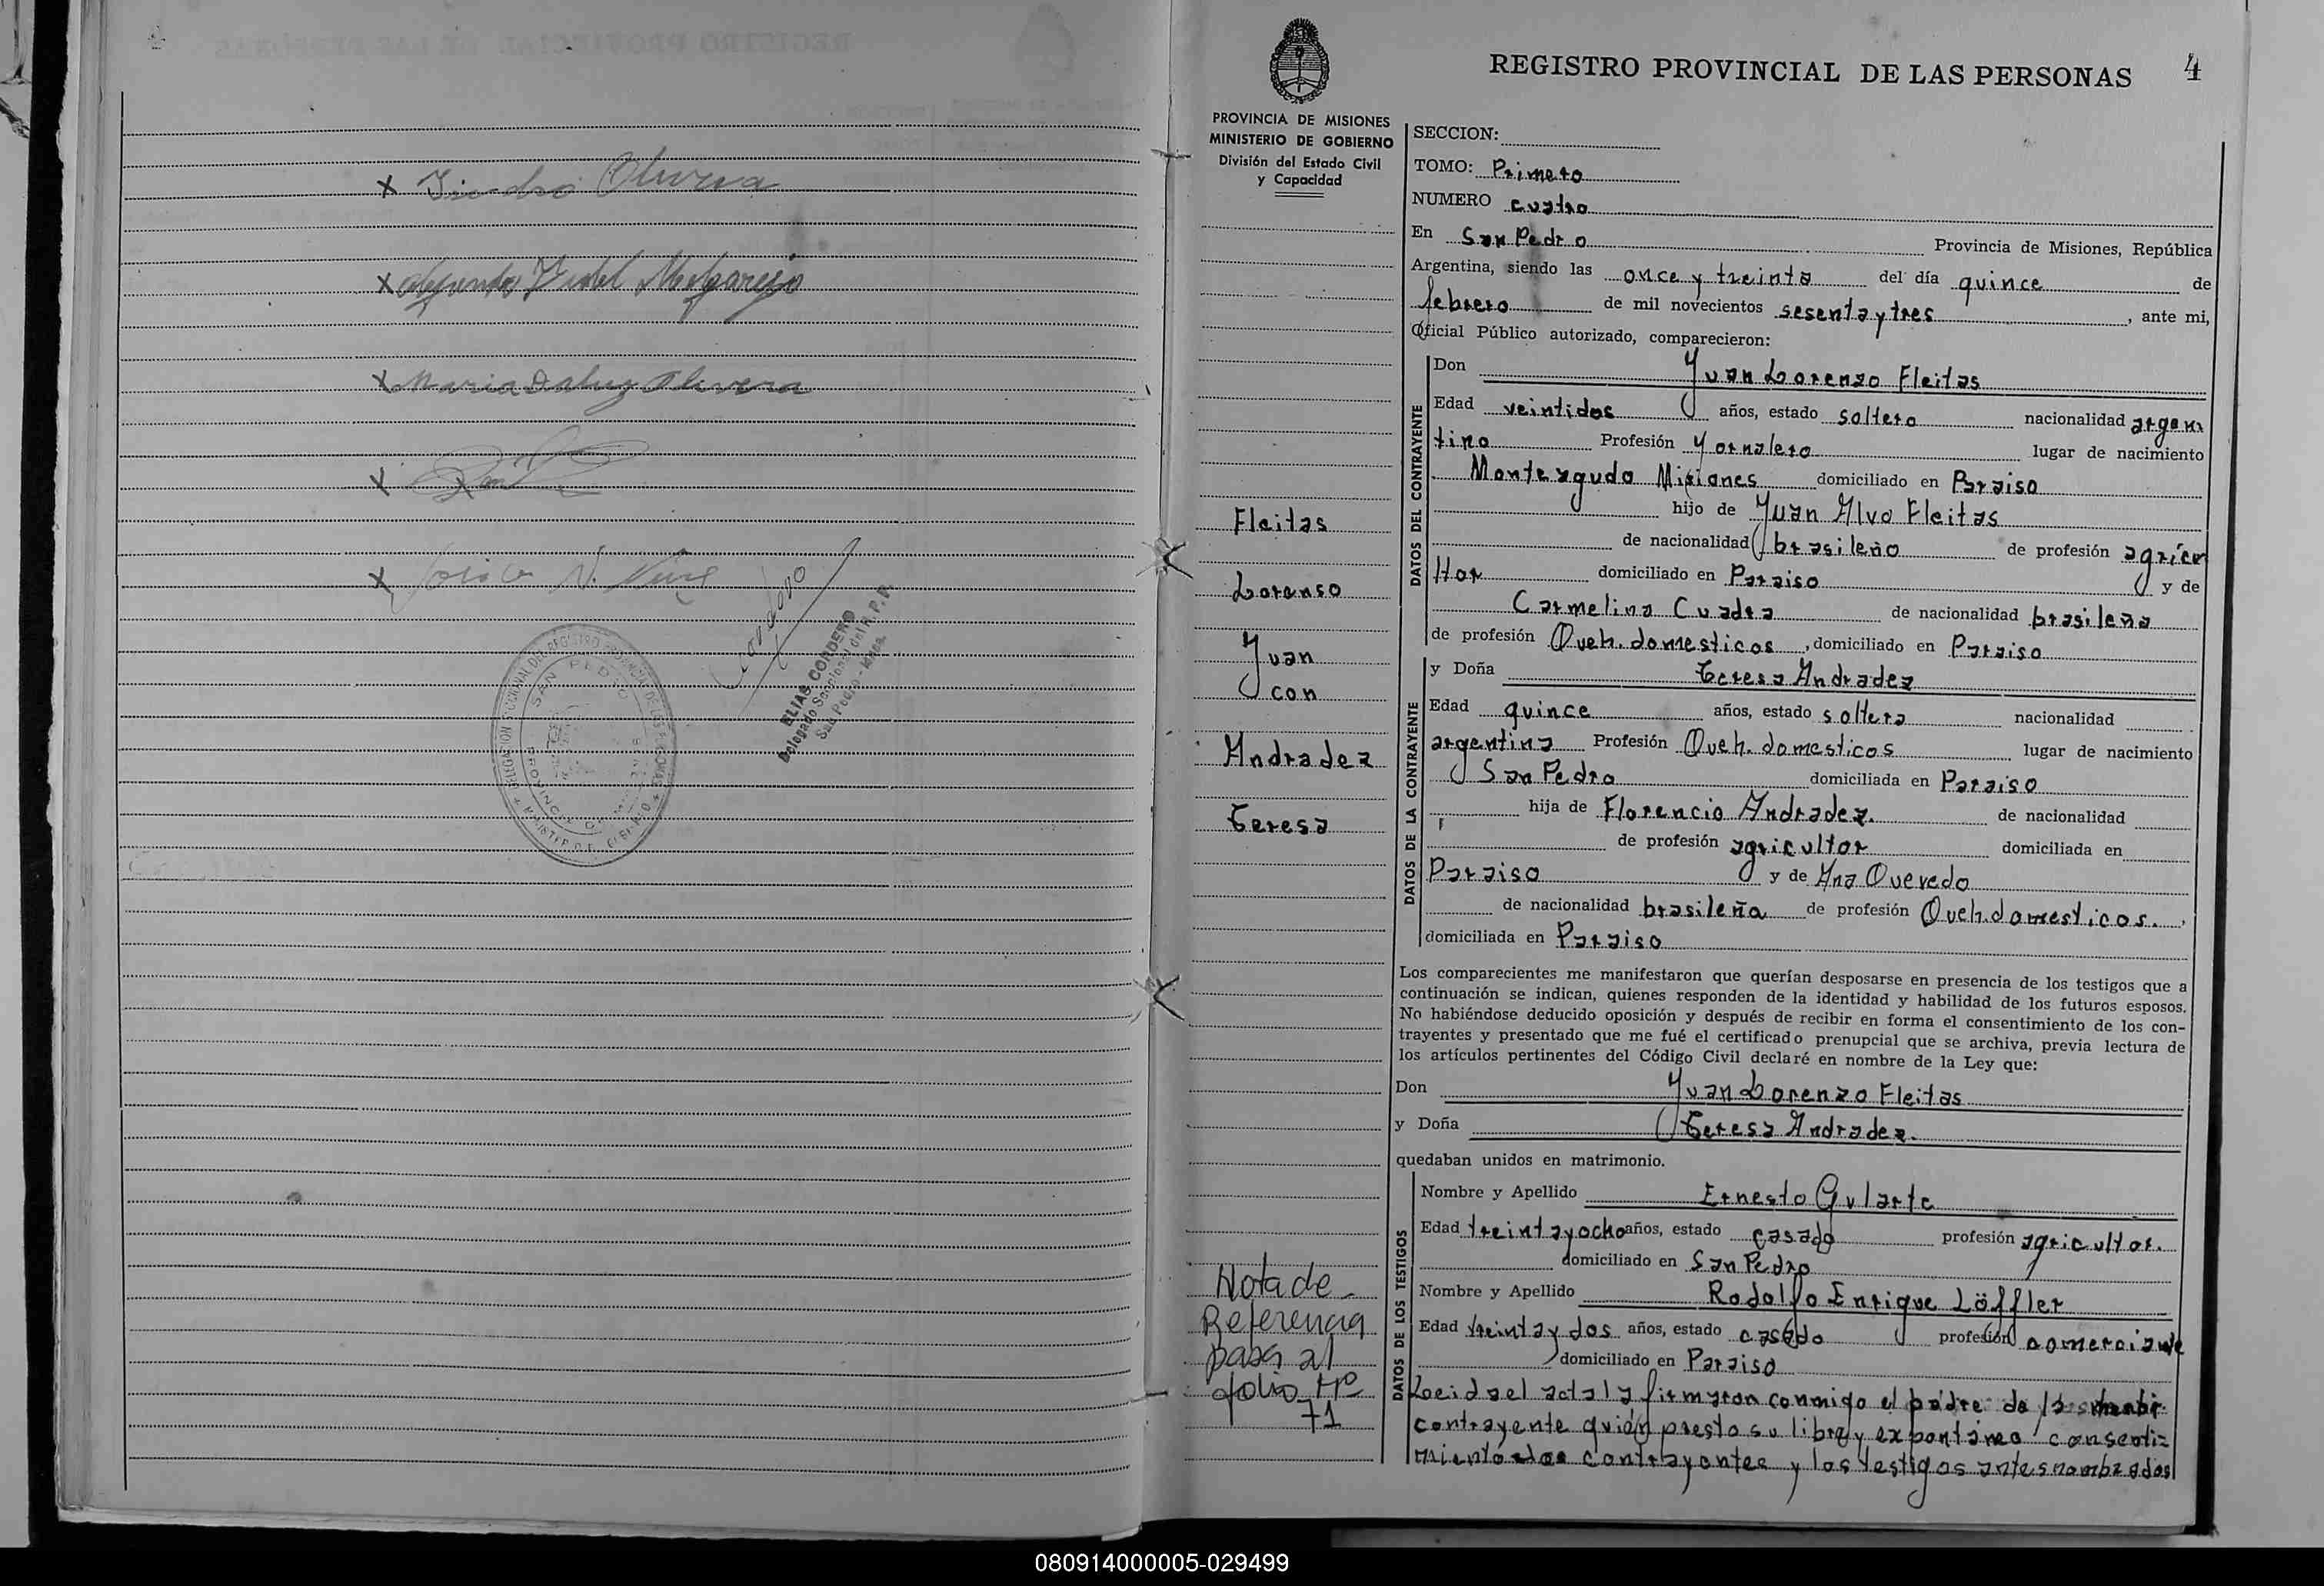 x Isidro Olivera
x Vidal Melgarejo
x Maria Daluz Olivera
x
x
ELIAS CORDERO
Delegado Seccional del R.P.P.
San Pedro - Mnes.
SAN PEDRO
REGISTRO PROVINCIAL DE LAS PERSONAS
4
PROVINCIA DE MISIONES
MINISTERIO DE GOBIERNO
División del Estado Civil
y Capacidad
Fleitas
Lorenso
Juan
con
Andradez
Teresa
Nota de
Referencia
pasa al
folio Nº
71
SECCION:
TOMO: Primero
NUMERO cuatro
En San Pedro Provincia de Misiones, República
Argentina, siendo las once y treinta del día quince de
febrero de mil novecientos sesenta y tres, ante mi,
Oficial Público autorizado, comparecieron:
DATOS DEL CONTRAYENTE
Don Juan Lorenzo Fleitas
Edad veintidos años, estado soltero nacionalidad argen
tino Profesión Jornalero lugar de nacimiento
Monteagudo Misiones domiciliado en Paraiso
hijo de Juan Alvo Fleitas
de nacionalidad brasileño de profesión agricul
tor domiciliado en Paraiso y de
Carmelina Cuadra de nacionalidad brasileña
de profesión Queh. domesticos, domiciliado en Paraiso
DATOS DE LA CONTRAYENTE
y Doña Teresa Andradez
Edad quince años, estado soltera nacionalidad
argentina Profesión Queh. domesticos lugar de nacimiento
San Pedro domiciliada en Paraiso
hija de Florencio Andradez. de nacionalidad
de profesión agricultor domiciliada en
Paraiso y de Ana Quevedo
de nacionalidad brasileña de profesión Queh. domesticos.,
domiciliada en Paraiso
Los comparecientes me manifestaron que querían desposarse en presencia de los testigos que a
continuación se indican, quienes responden de la identidad y habilidad de los futuros esposos.
No habiéndose deducido oposición y después de recibir en forma el consentimiento de los con-
trayentes y presentado que me fué el certificado prenupcial que se archiva, previa lectura de
los artículos pertinentes del Código Civil declaré en nombre de la Ley que:
Don Juan Lorenzo Fleitas
y Doña Teresa Andradez.
quedaban unidos en matrimonio.
DATOS DE LOS TESTIGOS
Nombre y Apellido Ernesto Gularte
Edad treinta y ocho años, estado casado profesión agricultor.
domiciliado en San Pedro
Nombre y Apellido Rodolfo Enrique Löffler
Edad treinta y dos años, estado casado profesión comerciante
domiciliado en Paraiso
Leida el acta la firmaron conmigo el padre de la
contrayente quién presto su libre y expontáneo consenti=
miento los contrayentes y los testigos antes nombrados
080914000005-029499